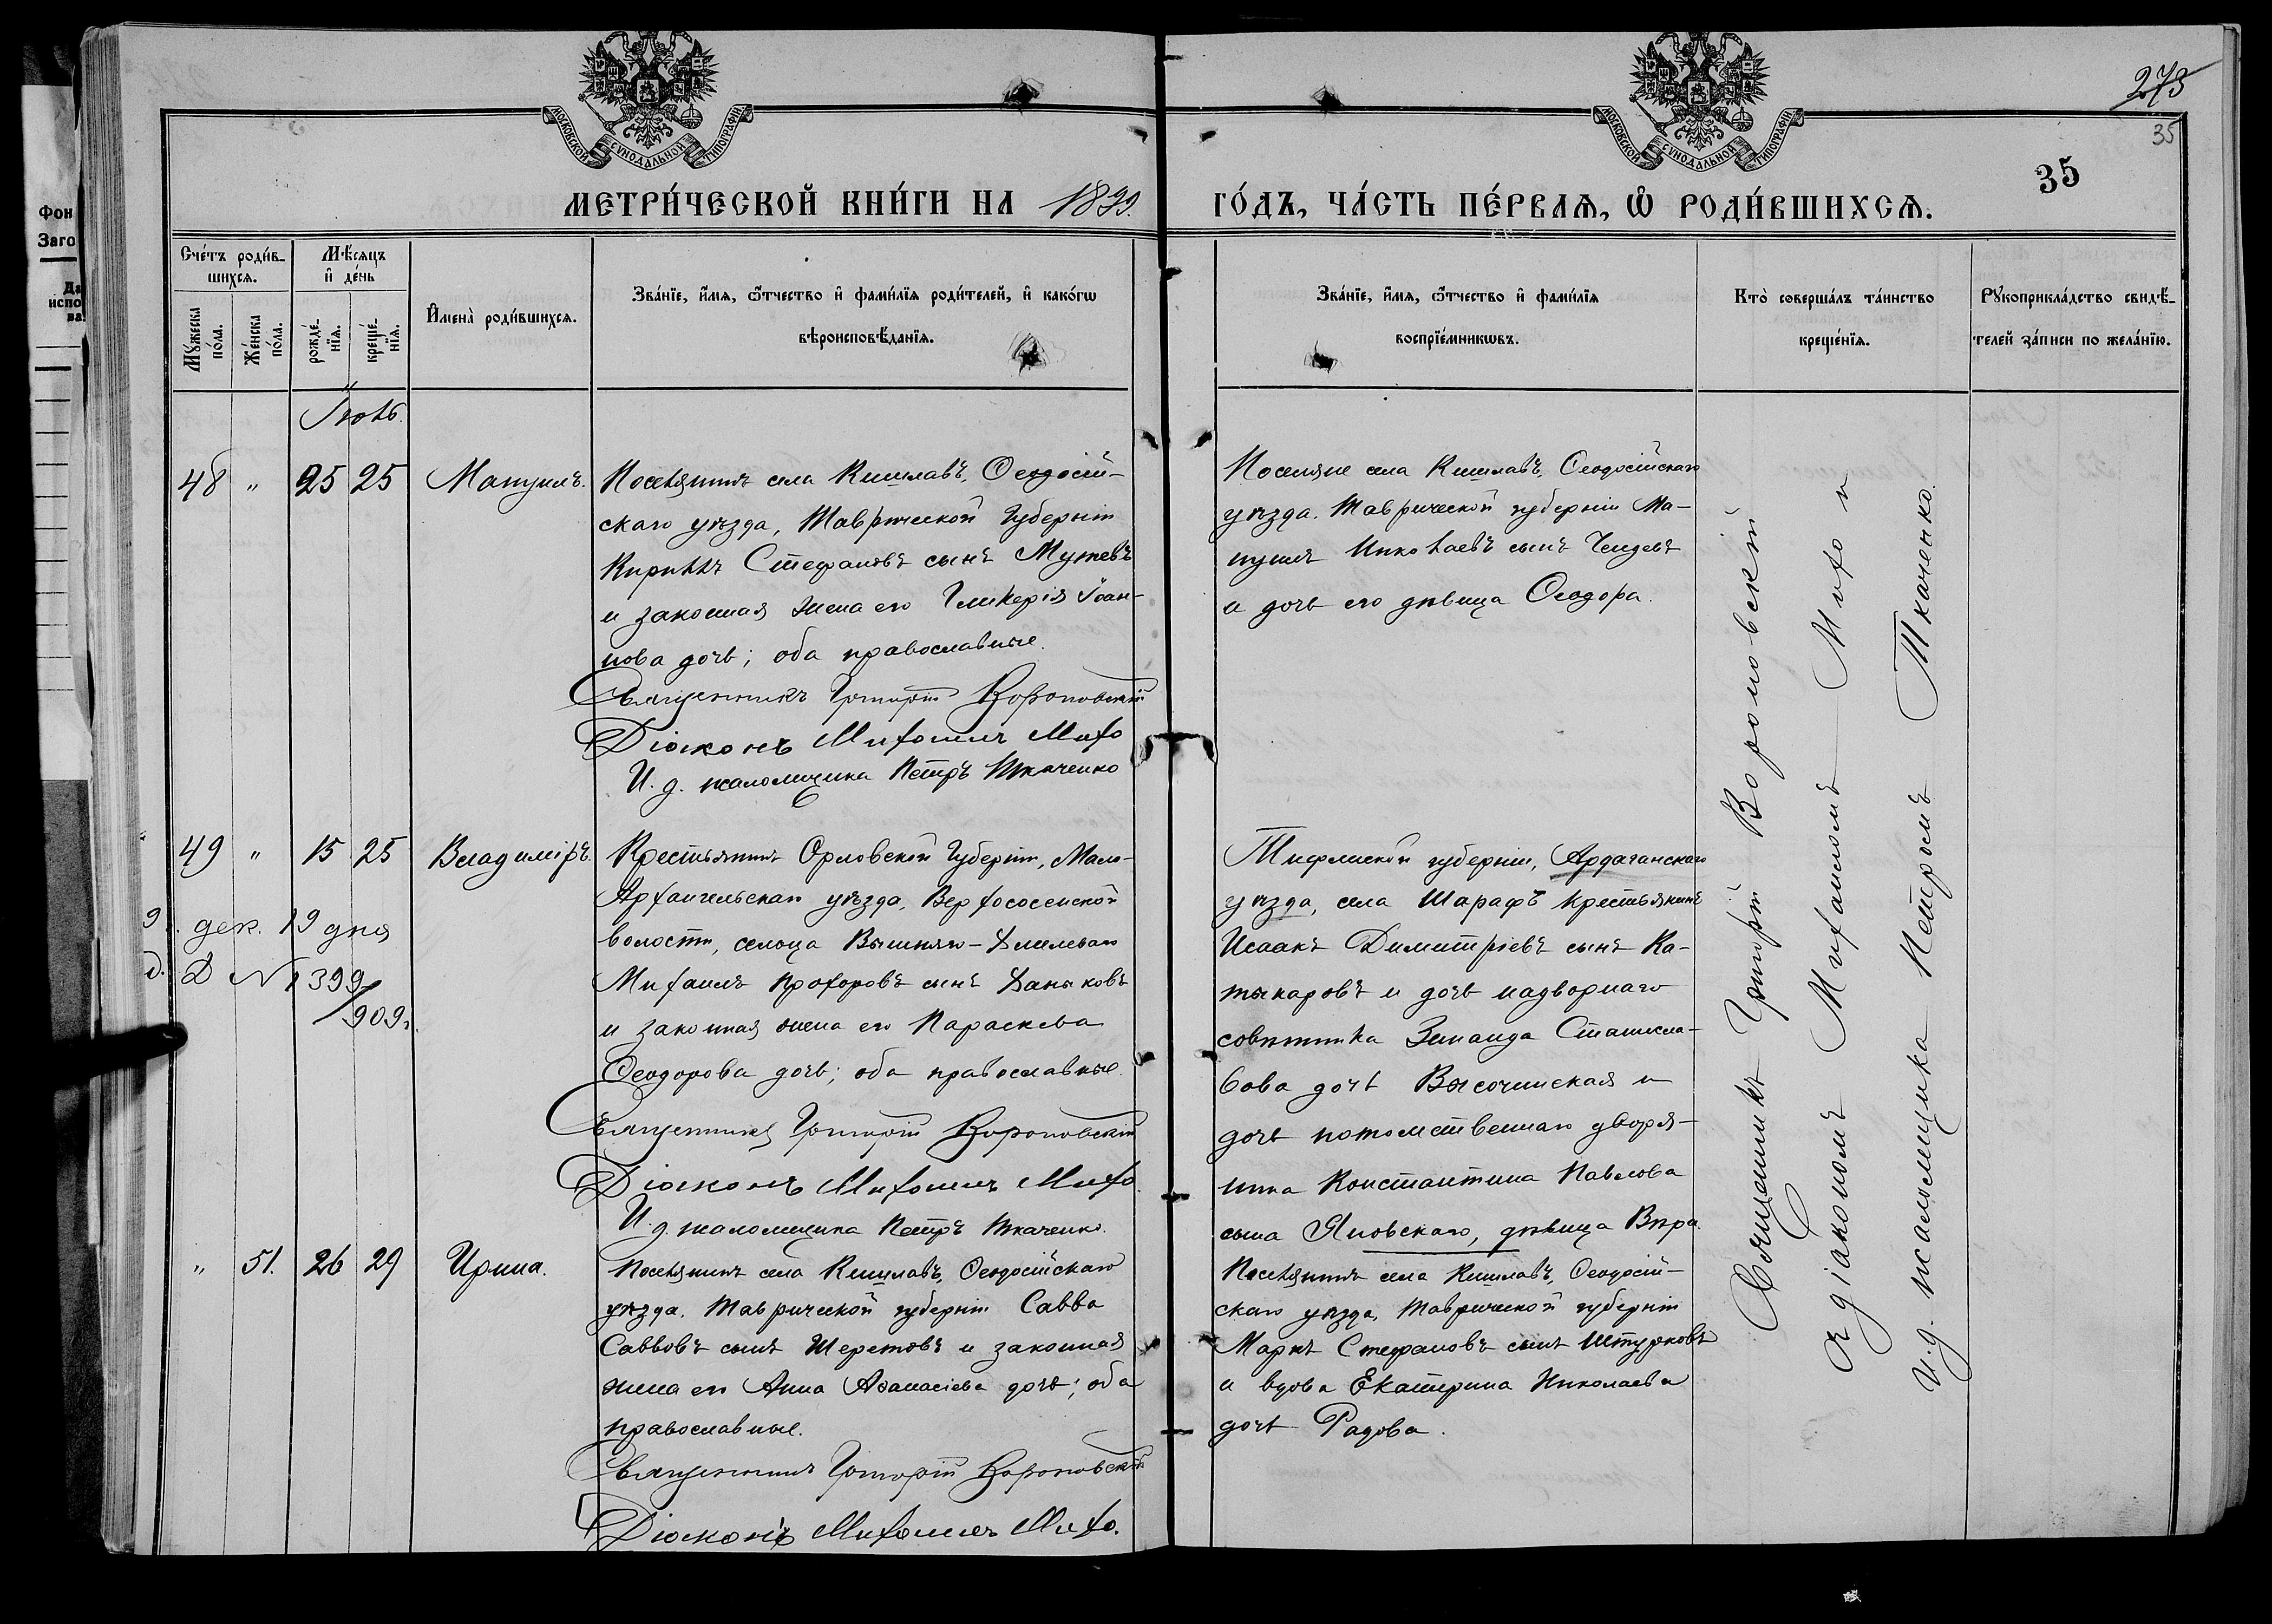 Фон
Заго
Да
испо
ва
273
35
35
МОСКОВСКОЙ СУНОДАЛЬНОЙ ТИПОГРАФІИ
МОСКОВСКОЙ СУНОДАЛЬНОЙ ТИПОГРАФІИ
МЕТРИ́ЧЕСКОЙ КНИ́ГИ НА 1899.
ГО́ДЪ, ЧА́СТЬ ПЕ́РВАѦ, Ѡ РОДИ́ВШИХСѦ.
Сче́тъ роди́в-
шихсѧ.
Мѣ́сѧцъ
и҆ де́нь
Мꙋ́жеска
по́ла.
Же́нска
по́ла.
рожде́-
нїѧ.
креще́-
нїѧ.
И҆мена̀ роди́вшихсѧ.
Зва́нїе, и҆́мѧ, ѻ҆́тчество и҆ фами́лїѧ роди́телей, и҆ како́гѡ
вѣроисповѣ́данїѧ.
Зва́нїе, и҆́мѧ, ѻ҆́тчество и҆ фами́лїѧ
воспрїе́мникѡвъ.
Кто̀ соверша́лъ та́инство
креще́нїѧ.
Рꙋкоприкла́дство свидѣ́-
телей за́писи по жела́нїю.
Іюль.
48 " 25 25 Мануилъ.
Поселянинъ села Кишлавъ, Ѳеодосій-
скаго уѣзда, Таврической Губерніи
Кириллъ Стефановъ сынъ Мутевъ
и законная жена его Гликерія Іоан-
нова дочь; оба православные.
Священникъ Григорій Вороновскій
Діаконъ Михаилъ Михо
И. д. псаломщика Петръ Ткаченко
Поселяне села Кишлавъ, Ѳеодосійскаго
уѣзда, Таврической губерніи Ма-
нуилъ Николаевъ сынъ Чендевъ
и дочь его дѣвица Ѳеодора.
49 " 15 25 Владиміръ.
дек. 19 дня
№ 1399
/909г.
Крестьянинъ Орловской Губерніи, Мало-
Архангельскаго уѣзда, Верхососенской
волости, сельца Вышняго-
Михаилъ Прохоровъ сынъ
и законная жена его Параскева
Ѳеодорова дочь; оба православные.
Священникъ Григорій Вороновскій
Діаконъ Михаилъ Михо.
И. д. псаломщика Петръ Ткаченко.
Тифлиской губерніи, Ардаганскаго
уѣзда, села Шарафъ крестьянинъ
Исаакъ Димитріевъ сынъ Ка-
тыкаровъ и дочь надворнаго
совѣтника Зинаида Станисла-
вова дочь Высочинская и
дочь потомственнаго дворя-
нина Константина Павлова
сына Яновскаго, дѣвица Вѣра.
" 51. 26 29 Ирина.
Поселянинъ села Кишлавъ, Ѳеодосійскаго
уѣзда, Таврической губерніи Савва
Саввовъ сынъ Шеретовъ и законная
жена его Анна Аѳанасіева дочь; оба
православные.
Священникъ Григорій Вороновскій
Діаконъ Михаилъ Михо.
Поселянинъ села Кишлавъ, Ѳеодосій-
скаго уѣзда, Таврической губерніи
Маркъ Стефановъ сынъ Штурковъ
и вдова Екатерина Николаева
дочь Радова.
Священникъ Григорій Вороновскій
съ діакономъ Михаиломъ Михо и
и.д. псаломщика Петромъ Ткаченко.